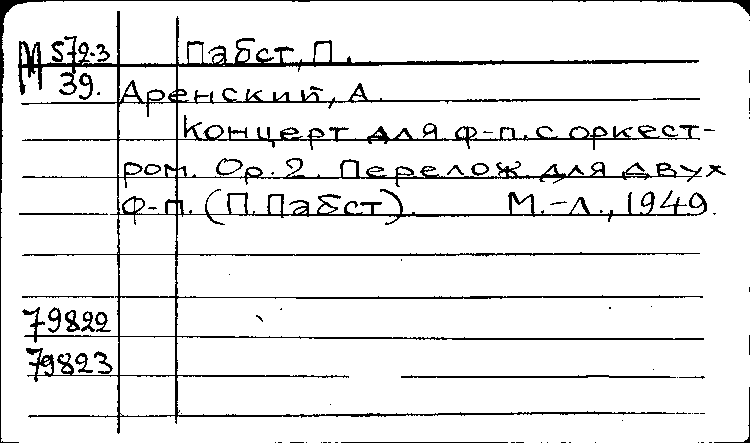 М 572.3 Пабст, П.
39.
Аренский, А.
Концерт для ф-п. с оркест-
ром. Op. 2. Перелож. для двух
ф-п. (П. Пабст). М.-Л., 1949.
79822
79823